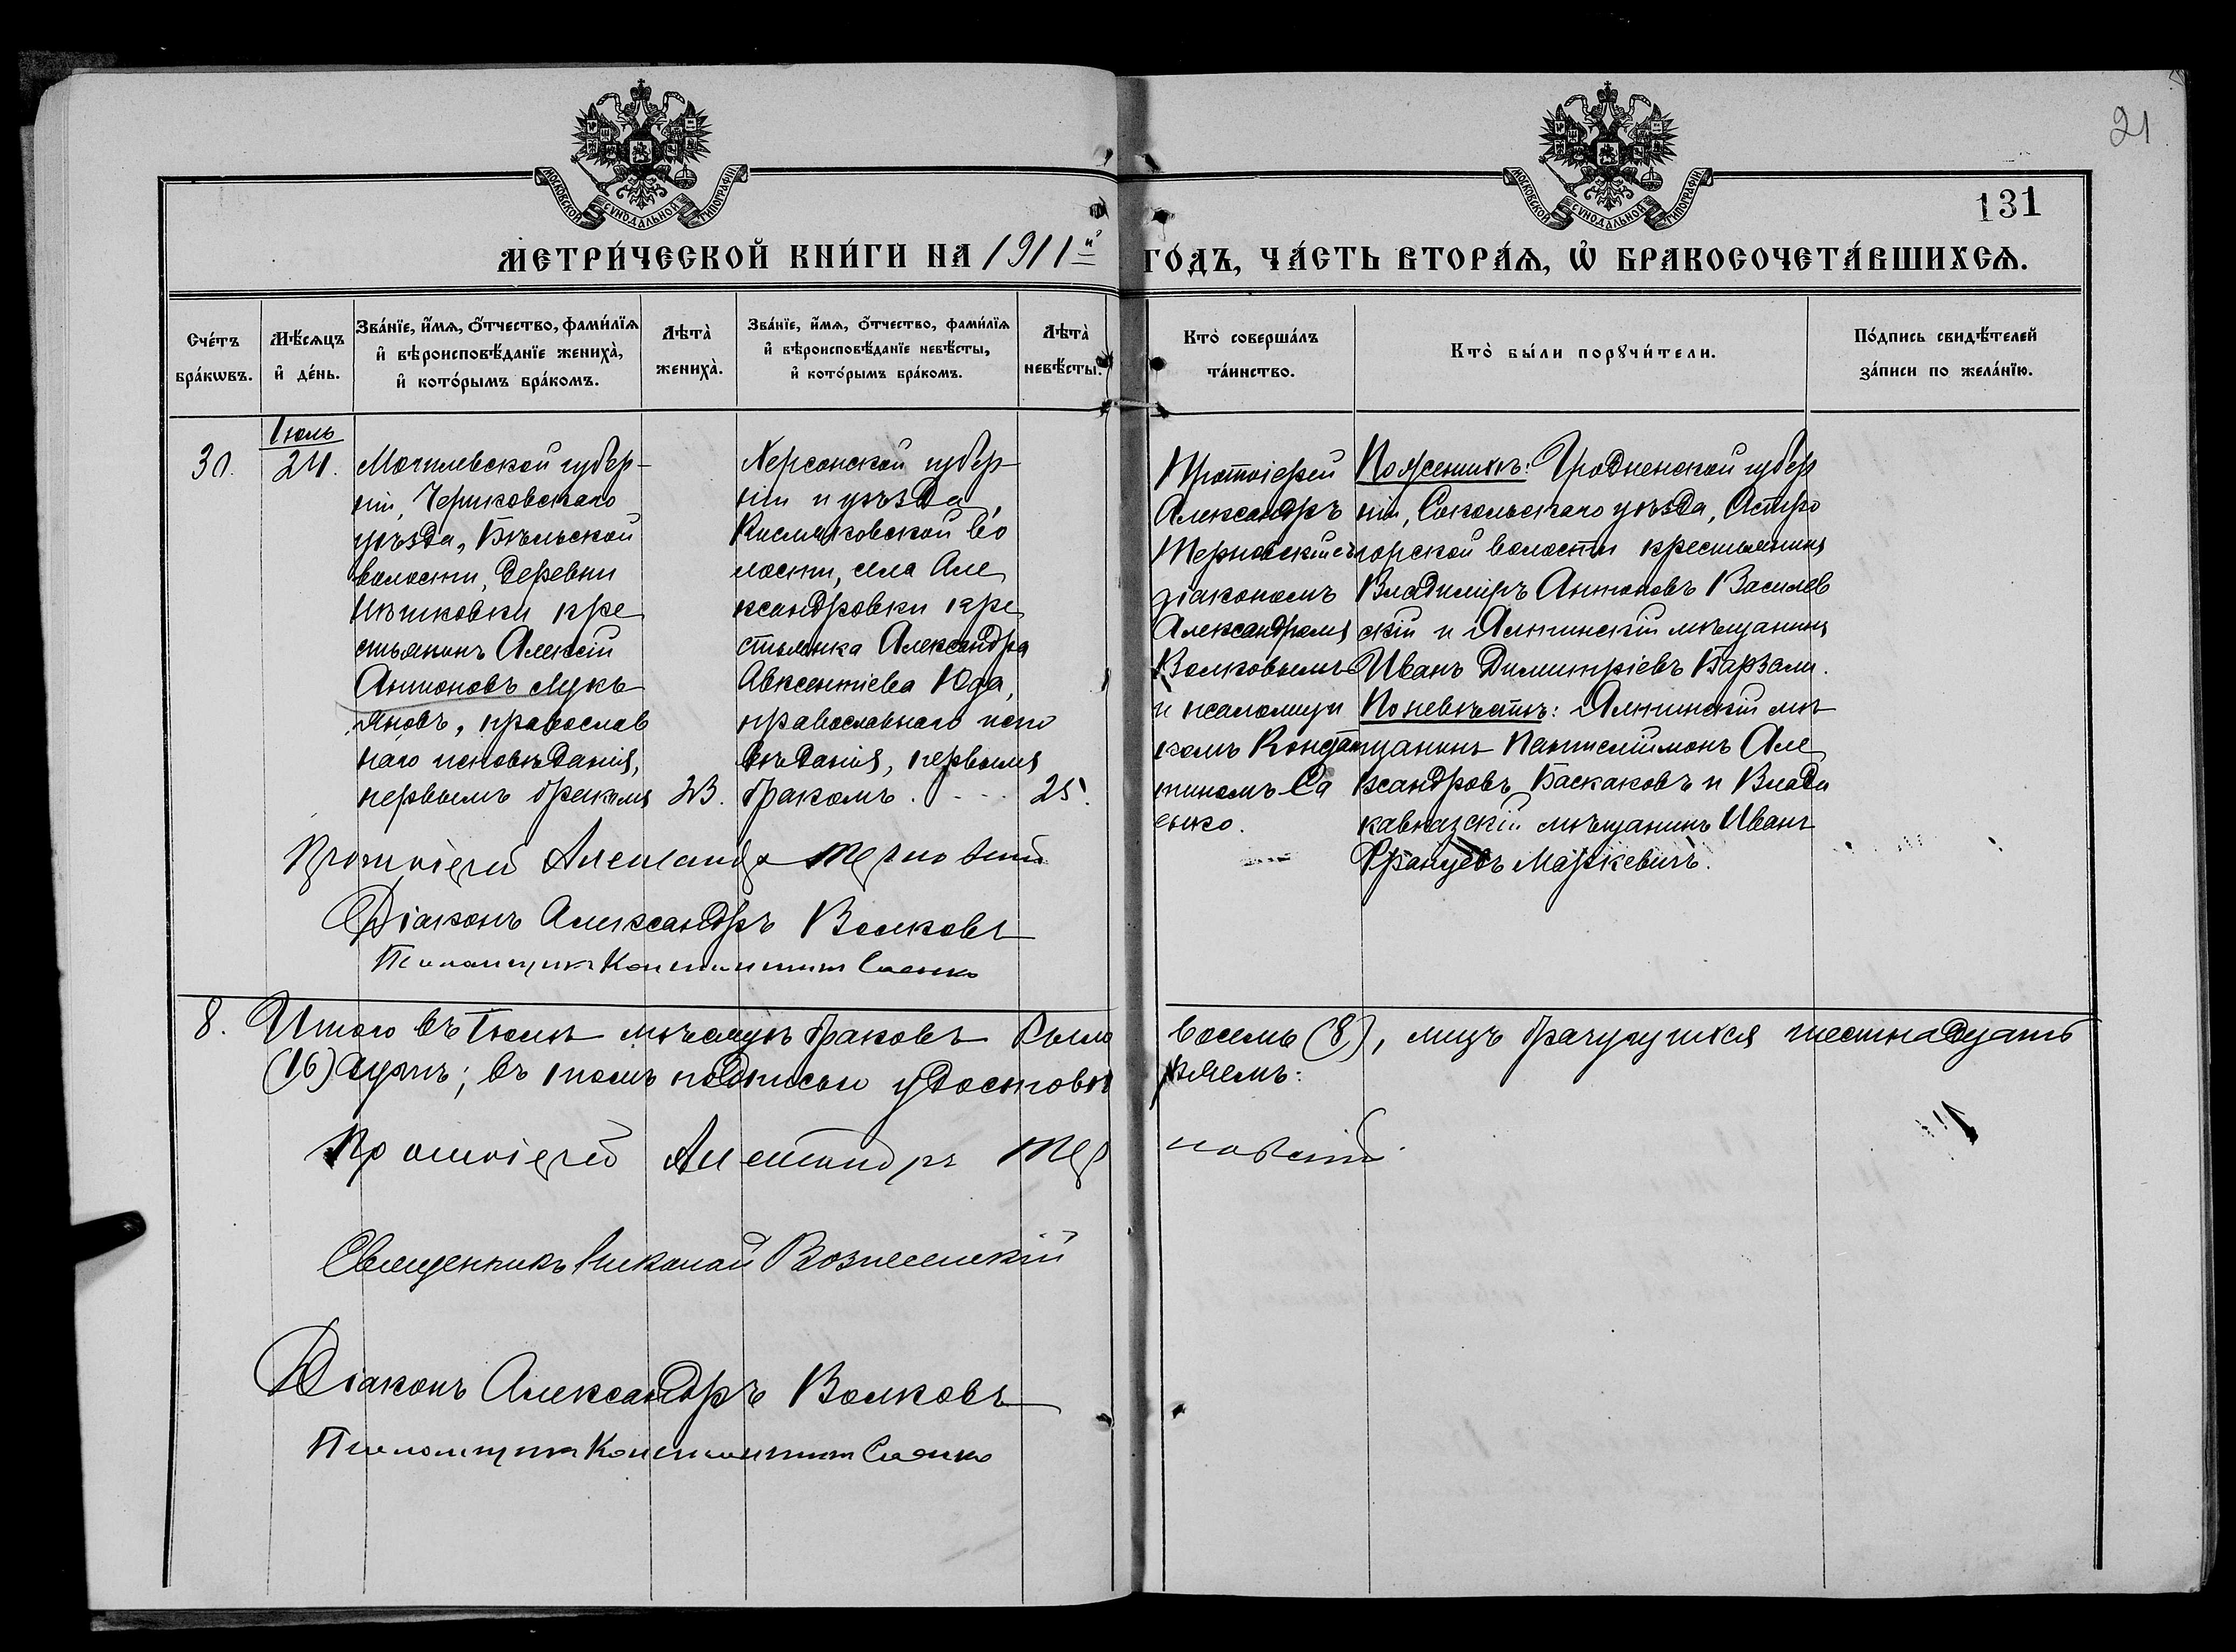 21
131
МОСКОВСКОЙ СѴНОДАЛЬНОЙ ТИПОГРАФІИ
МОСКОВСКОЙ СѴНОДАЛЬНОЙ ТИПОГРАФІИ
МЕТРИ́ЧЕСКОЙ КНИ́ГИ НА 1911й ГО́ДЪ, ЧА́СТЬ ВТОРА́Ѧ, Ѡ҆ БРАКОСОЧЕТА́ВШИХСѦ.
Сче́тъ
бра́кѡвъ.
Мѣ́сѧцъ
и҆ де́нь.
Зва́нїе, и҆́мѧ, ѻ҆́тчество, фами́лїѧ
и҆ вѣроисповѣ́данїе жениха̀,
и҆ кото́рымъ бра́комъ.
Лѣта̀
жениха̀.
Зва́нїе, и҆́мѧ, ѻ҆́тчество, фами́лїѧ
и҆ вѣроисповѣ́данїе невѣ́сты,
и҆ кото́рымъ бра́комъ.
Лѣта̀
невѣ́сты.
Кто̀ соверша́лъ
та́инство.
Кто̀ бы́ли порꙋчи́тели.
По́дпись свидѣ́телей
за́писи по жела́нїю.
30.
Іюль
24.
Могилевской губер-
ніи, Чериковскаго
уѣзда, Бѣльской
волости, деревни
кре
стьянинъ Алексій
Антоновъ Лукь
яновъ, православ
наго исповѣданія,
первымъ бракомъ
23.
Херсонской губер-
ніи и уѣзда,
Кисляковской во
лости, села Але
ксандровки кре
стьянка Александра
Авксентіева Юда,
православнаго испо
вѣданія, первымъ
бракомъ.
25.
Протоіерей
Александръ
Терновскій съ
діакономъ
Александромъ
Волковымъ
и псаломщи
комъ Констан
тиномъ Са
енко.
По женихѣ: Гродненской губер
ніи, Сокольскаго уѣзда, Остро
горской волости крестьянинъ
Владиміръ Антоновъ Василев
скій и Ялтинскій мѣщанинъ
Иванъ Димитріевъ Барзали.
По невѣстѣ: Ялтинскій мѣ
щанинъ Пантелеймонъ Але
ксандровъ Баскаковъ и Влади
кавказскій мѣщанинъ Иванъ
Францевъ Маркевичъ.
Протоіерей Александръ Терновскій
Діаконъ Александръ Волковъ
Псаломщикъ Константинъ Саенко
8. Итого въ Іюлѣ мѣсяцѣ браковъ было восемь (8), лицъ брачущихся шестнадцать
(16) душъ; въ томъ подписью удостовѣряемъ:
Протоіерей Александръ Терновскій.
Священникъ Николай Вознесенскій
Діаконъ Александръ Волковъ
Псаломщикъ Константинъ Саенко